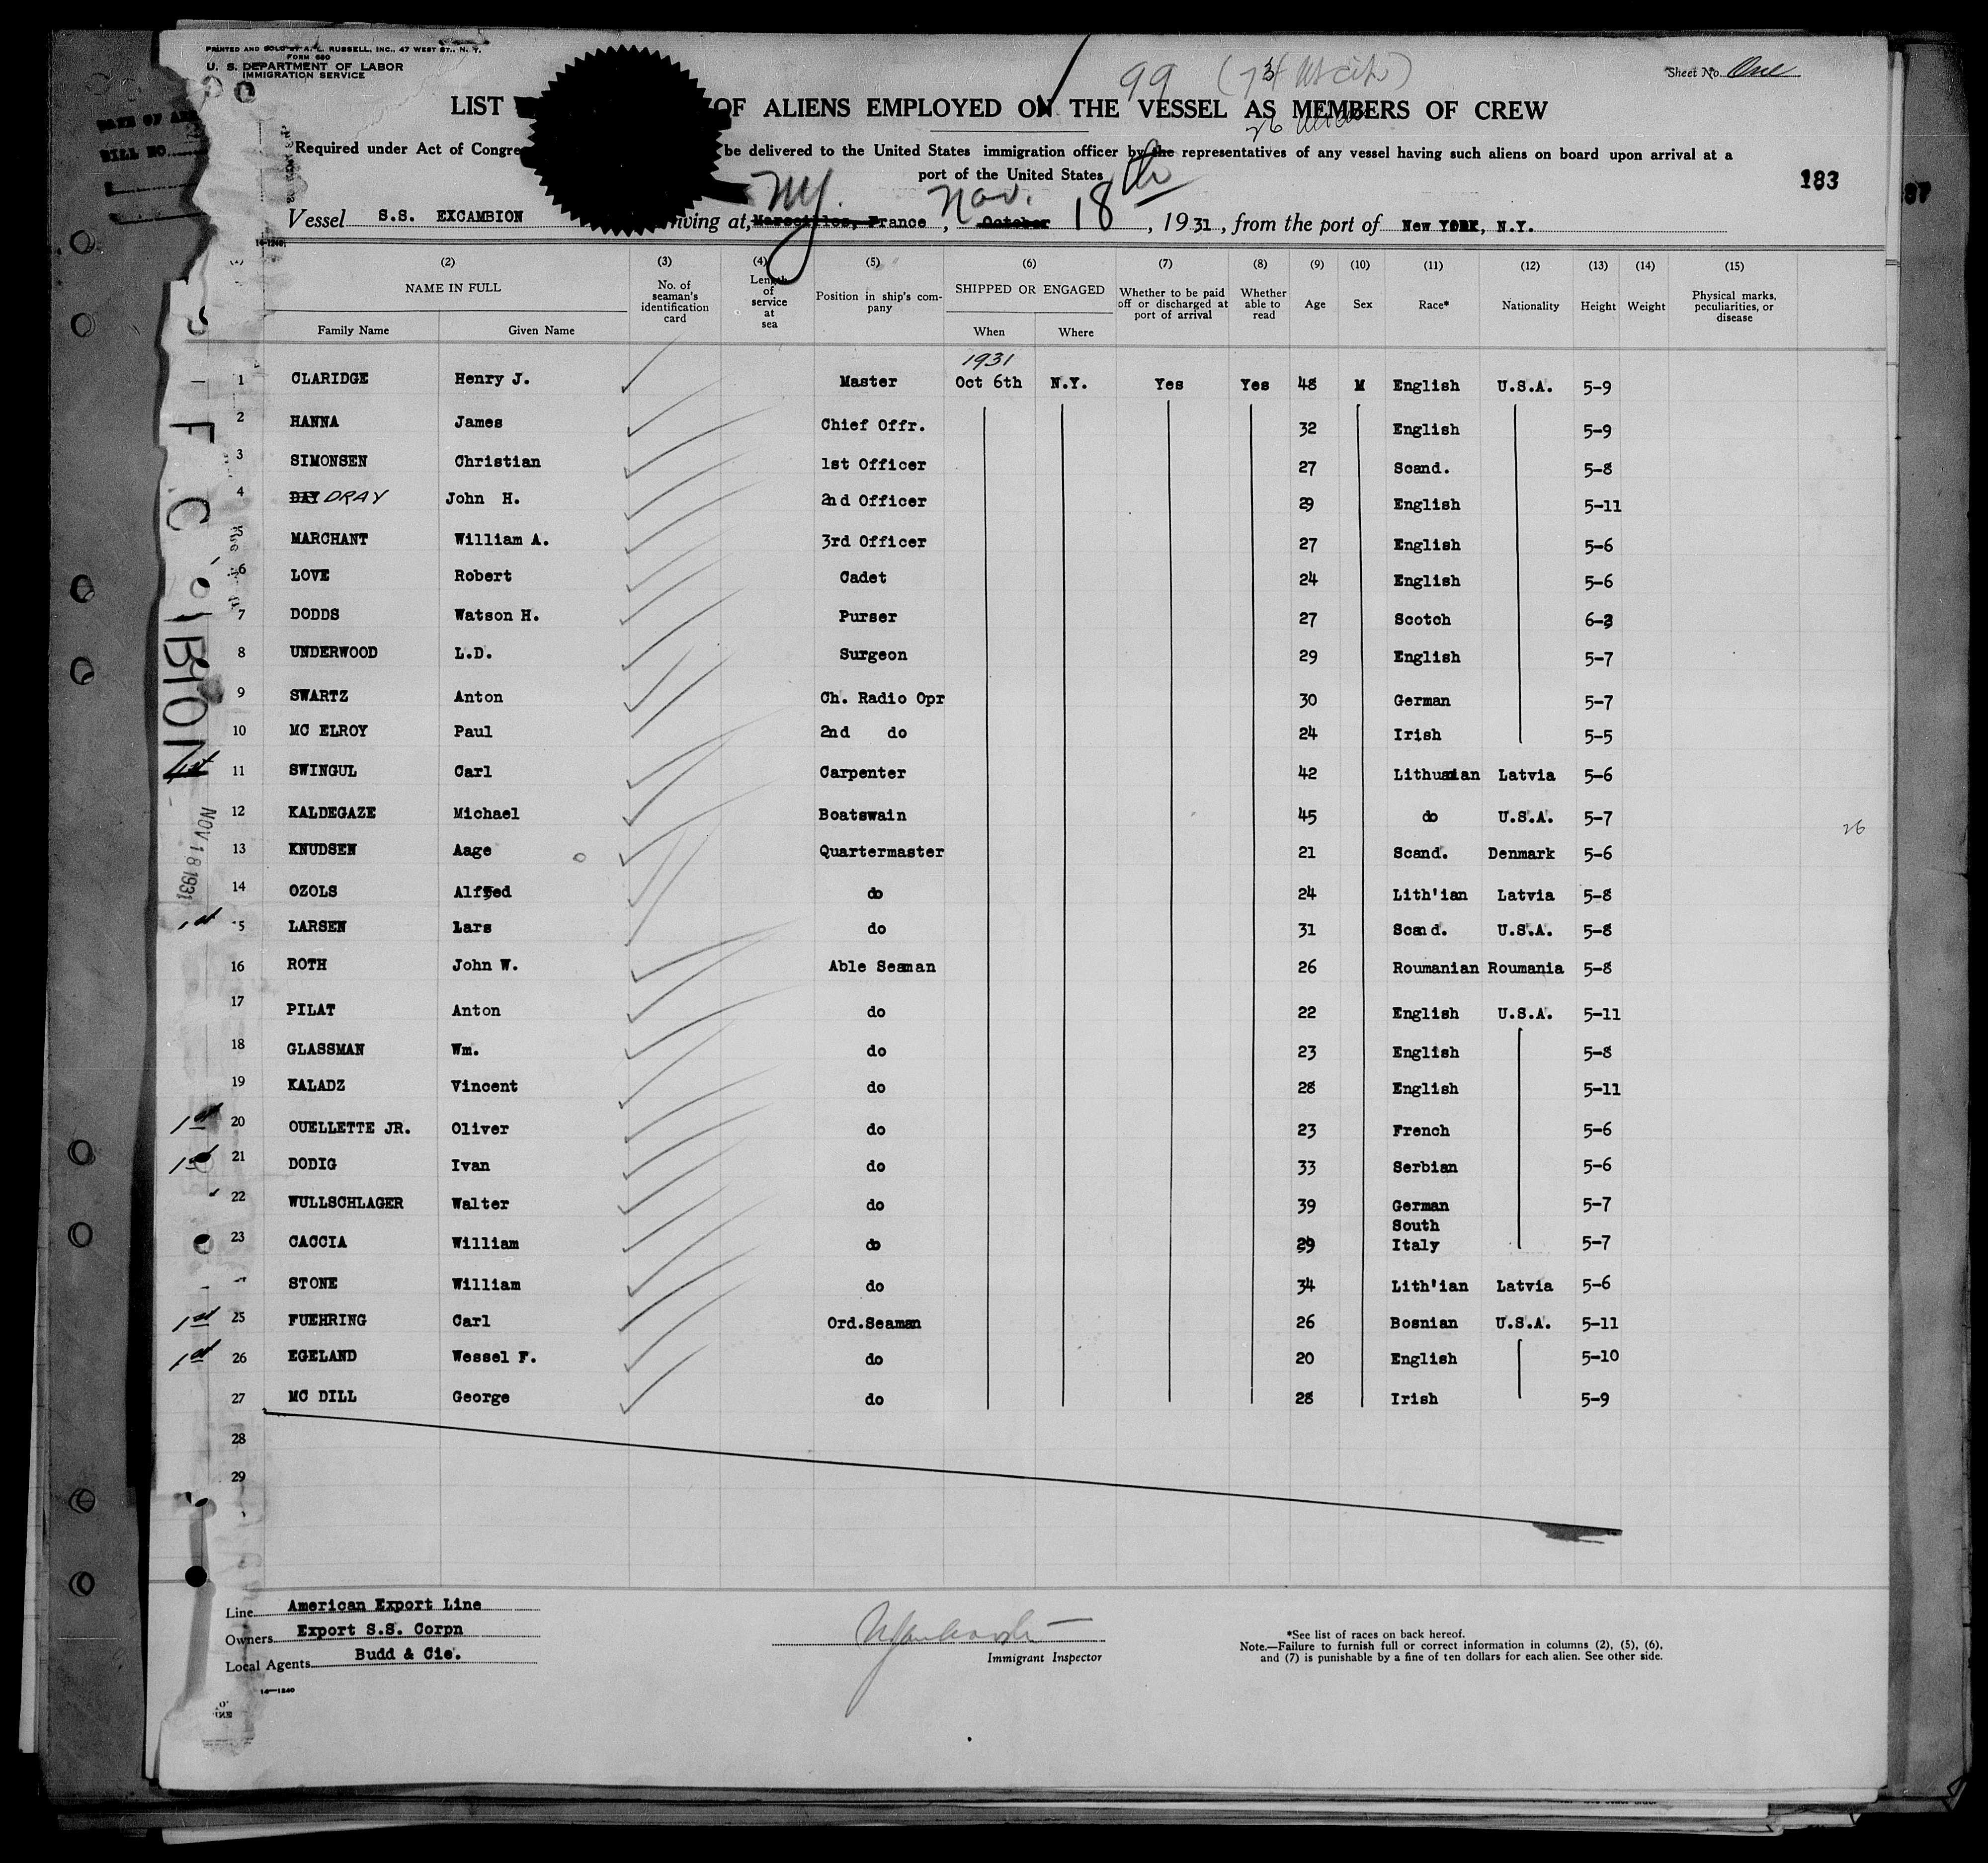 PRINTED AND SOLD BY A. L. RUSSELL, INC., 47 WEST ST., N. Y.
FORM 680
U. S. DEPARTMENT OF LABOR
IMMIGRATION SERVICE
99
Sheet No. One
LIST OF ALIENS EMPLOYED ON THE VESSEL AS MEMBERS OF CREW
Required under Act of Congre be delivered to the United States immigration officer by the representatives of any vessel having such aliens on board upon arrival at a
port of the United States
183
Vessel S.S. EXCAMBION iving at, Marseilles, France NY. , October Nov. 18th , 1931, from the port of New YORK, N.Y.
(2) (3) (4) (5) (6) (7) (8) (9) (10) (11) (12) (13) (14) (15)
NAME IN FULL No. of seaman's identification card Length of service at sea Position in ship's company SHIPPED OR ENGAGED Whether to be paid off or discharged at port of arrival Whether able to read Age Sex Race* Nationality Height Weight Physical marks, peculiarities, or disease
Family Name Given Name When Where
1931
1 CLARIDGE Henry J. Master Oct 6th N.Y. Yes Yes 48 M English U.S.A. 5-9
2 HANNA James Chief Offr. 32 English 5-9
3 SIMONSEN Christian 1st Officer 27 Scand. 5-8
4 DAY DRAY John H. 2nd Officer 29 English 5-11
5 MARCHANT William A. 3rd Officer 27 English 5-6
6 LOVE Robert Cadet 24 English 5-6
7 DODDS Watson H. Purser 27 Scotch
8 UNDERWOOD L.D. Surgeon 29 English 5-7
9 SWARTZ Anton Ch. Radio Opr 30 German 5-7
10 MC ELROY Paul 2nd do 24 Irish 5-5
11 SWINGUL Carl Carpenter 42 Lithuanian Latvia 5-6
12 KALDEGAZE Michael Boatswain 45 do U.S.A. 5-7
26
13 KNUDSEN Aage Quartermaster 21 Scand. Denmark 5-6
14 OZOLS Alfred do 24 Lith'ian Latvia 5-8
1st 5 LARSEN Lars do 31 Scand. U.S.A. 5-8
16 ROTH John W. Able Seaman 26 Roumanian Roumania 5-8
17 PILAT Anton do 22 English U.S.A. 5-11
18 GLASSMAN Wm. do 23 English 5-8
19 KALADZ Vincent do 28 English 5-11
1st 20 OUELLETTE JR. Oliver do 23 French 5-6
21 DODIG Ivan do 33 Serbian 5-6
22 WULLSCHLAGER Walter do 39 German 5-7
23 CACCIA William do 29 South Italy 5-7
STONE William do 34 Lith'ian Latvia 5-6
1st 25 FUEHRING Carl Ord.Seaman 26 Bosnian U.S.A. 5-11
1st 26 EGELAND Wessel F. do 20 English 5-10
27 MC DILL George do 28 Irish 5-9
28
29
NOV 18 1931
Line American Export Line
Owners Export S.S. Corpn
Local Agents Budd & Cie.
14-1240
Immigrant Inspector
*See list of races on back hereof.
Note.—Failure to furnish full or correct information in columns (2), (5), (6),
and (7) is punishable by a fine of ten dollars for each alien. See other side.